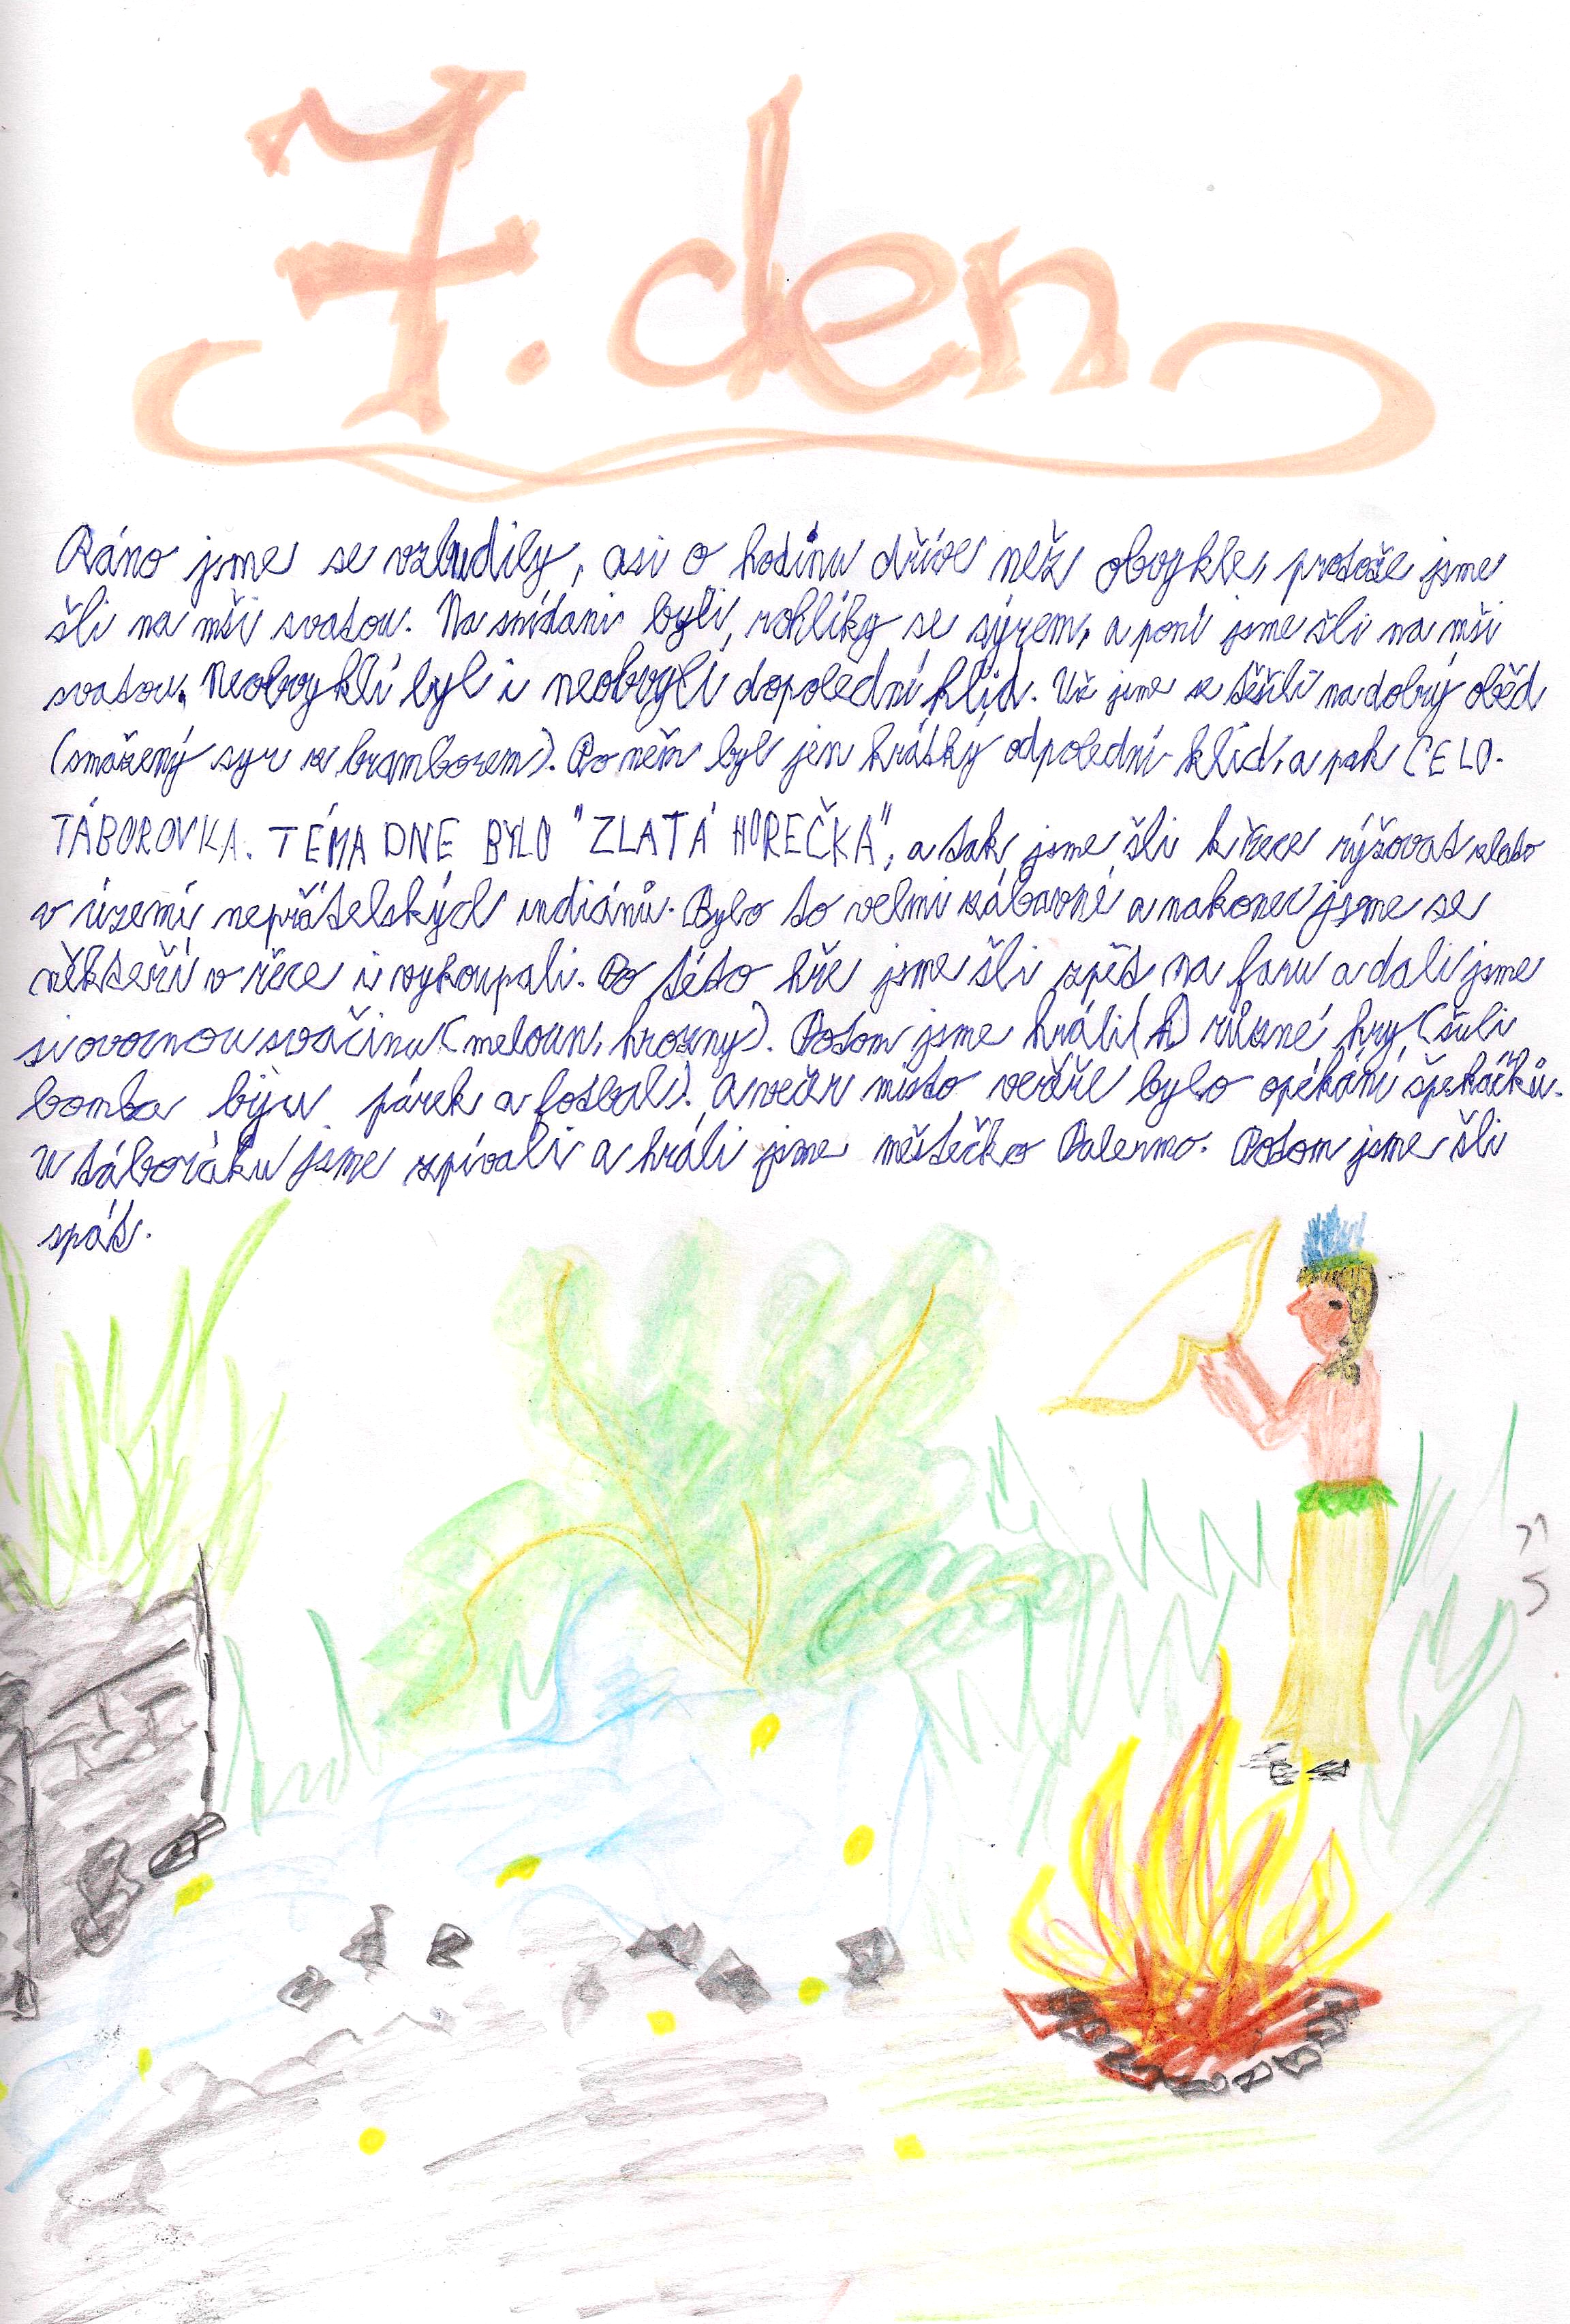 7. den
Ráno jsme se vzbudily, asi o hodinu dříve než obvykle, protože jsme
šli na mši svatou. Na snídani byli rohlíky se sýrem, a poní jsme šli na mši
svatou. Neobvyklí byl i neobvylí dopolední klid. Už jsme se těšili na dobrý oběd
(smažený syr z bramborem). Po něm byl jen krátký odpolední klid, a pak CELO-
TÁBOROVKA. TÉMA DNE BYLO "ZLATÁ HOREČKA", a tak jsme šli k řece rýžovat zlato
v území nepřátelských indiánů. Bylo to velmi zábavné a nakonec jsme se
někteří v řece i vykoupali. Po této hře jsme šli zpět na faru a dali jsme
si ovocnou sváčinu (meloun, hrozny). Potom jsme hráli (h) různé hry (šuli
bomba bijů párek a fotbal). A večer místo večeře bylo opékání špekáčků.
U táboráku jsme zpívali a hráli jsme městečko Palermo. Potom jsme šli
spát.